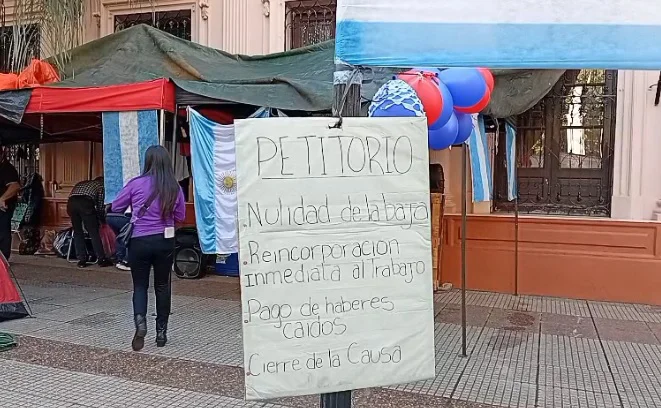 PETITORIO
. Nulidad de la baja
. Reincorporación
inmediata al Trabajo
. Pago de haberes
caidos
. Cierre de la Causa